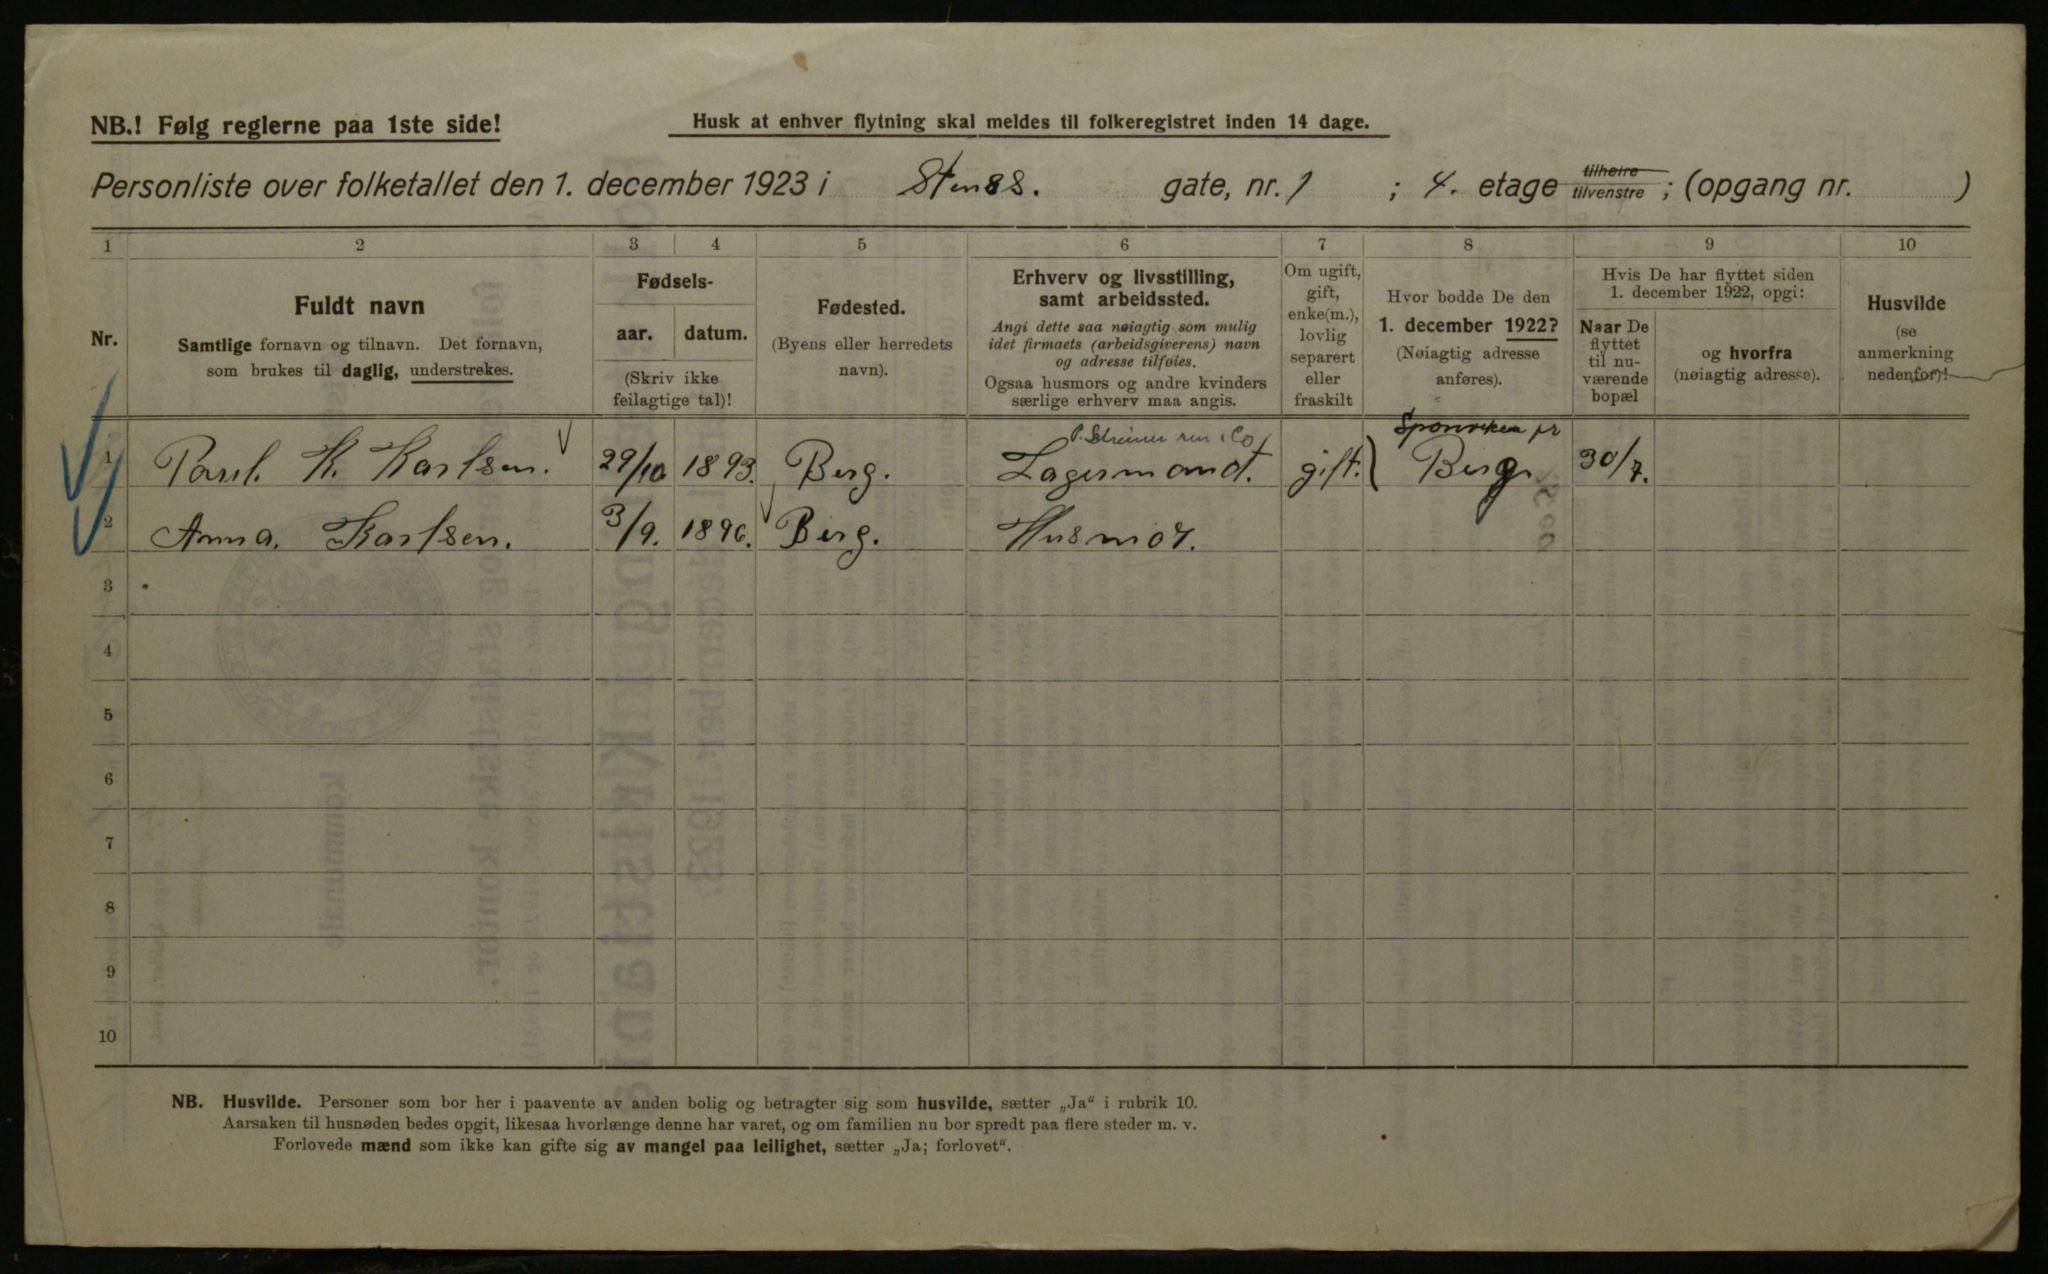 NB.! Følg reglerne paa 1ste side!
Husk at enhver flytning skal meldes til folkeregistret inden 14 dage.
Personliste over folketallet den 1. december 1923 i Stenss. gate, nr. 1 ; 4. etage tilhøire tilvenstre ; (opgang nr. )
1 2 3 4 5 6 7 8 9 10
Nr.
Fuldt navn
Samtlige fornavn og tilnavn. Det fornavn,
som brukes til daglig, understrekes.
Fødsels-
aar. datum.
(Skriv ikke
feilagtige tal)!
Fødested.
(Byens eller herredets
navn).
Erhverv og livsstilling,
samt arbeidssted.
Angi dette saa nøiagtig som mulig
idet firmaets (arbeidsgiverens) navn
og adresse tilføies.
Ogsaa husmors og andre kvinders
særlige erhverv maa angis.
Om ugift,
gift,
enke(m.),
lovlig
separert
eller
fraskilt
Hvor bodde De den
1. december 1922?
(Nøiagtig adresse
anføres).
Hvis De har flyttet siden
1. december 1922, opgi:
Naar De
flyttet
til nu-
værende
bopæl
og hvorfra
(nøiagtig adresse).
Husvilde
(se
anmerkning
nedenfor)!
1 Paul. K. Karlsen. 29/10 1893. Berg. Lagermand. gift. Berg. 30/7.
2 Anna. Karlsen. 3/9. 1896. Berg. Husmor.
3
4
5
6
7
8
9
10
NB. Husvilde. Personer som bor her i paavente av anden bolig og betragter sig som husvilde, sætter „Ja“ i rubrik 10.
Aarsaken til husnøden bedes opgit, likesaa hvorlænge denne har varet, og om familien nu bor spredt paa flere steder m. v.
Forlovede mænd som ikke kan gifte sig av mangel paa leilighet, sætter „Ja; forlovet“.